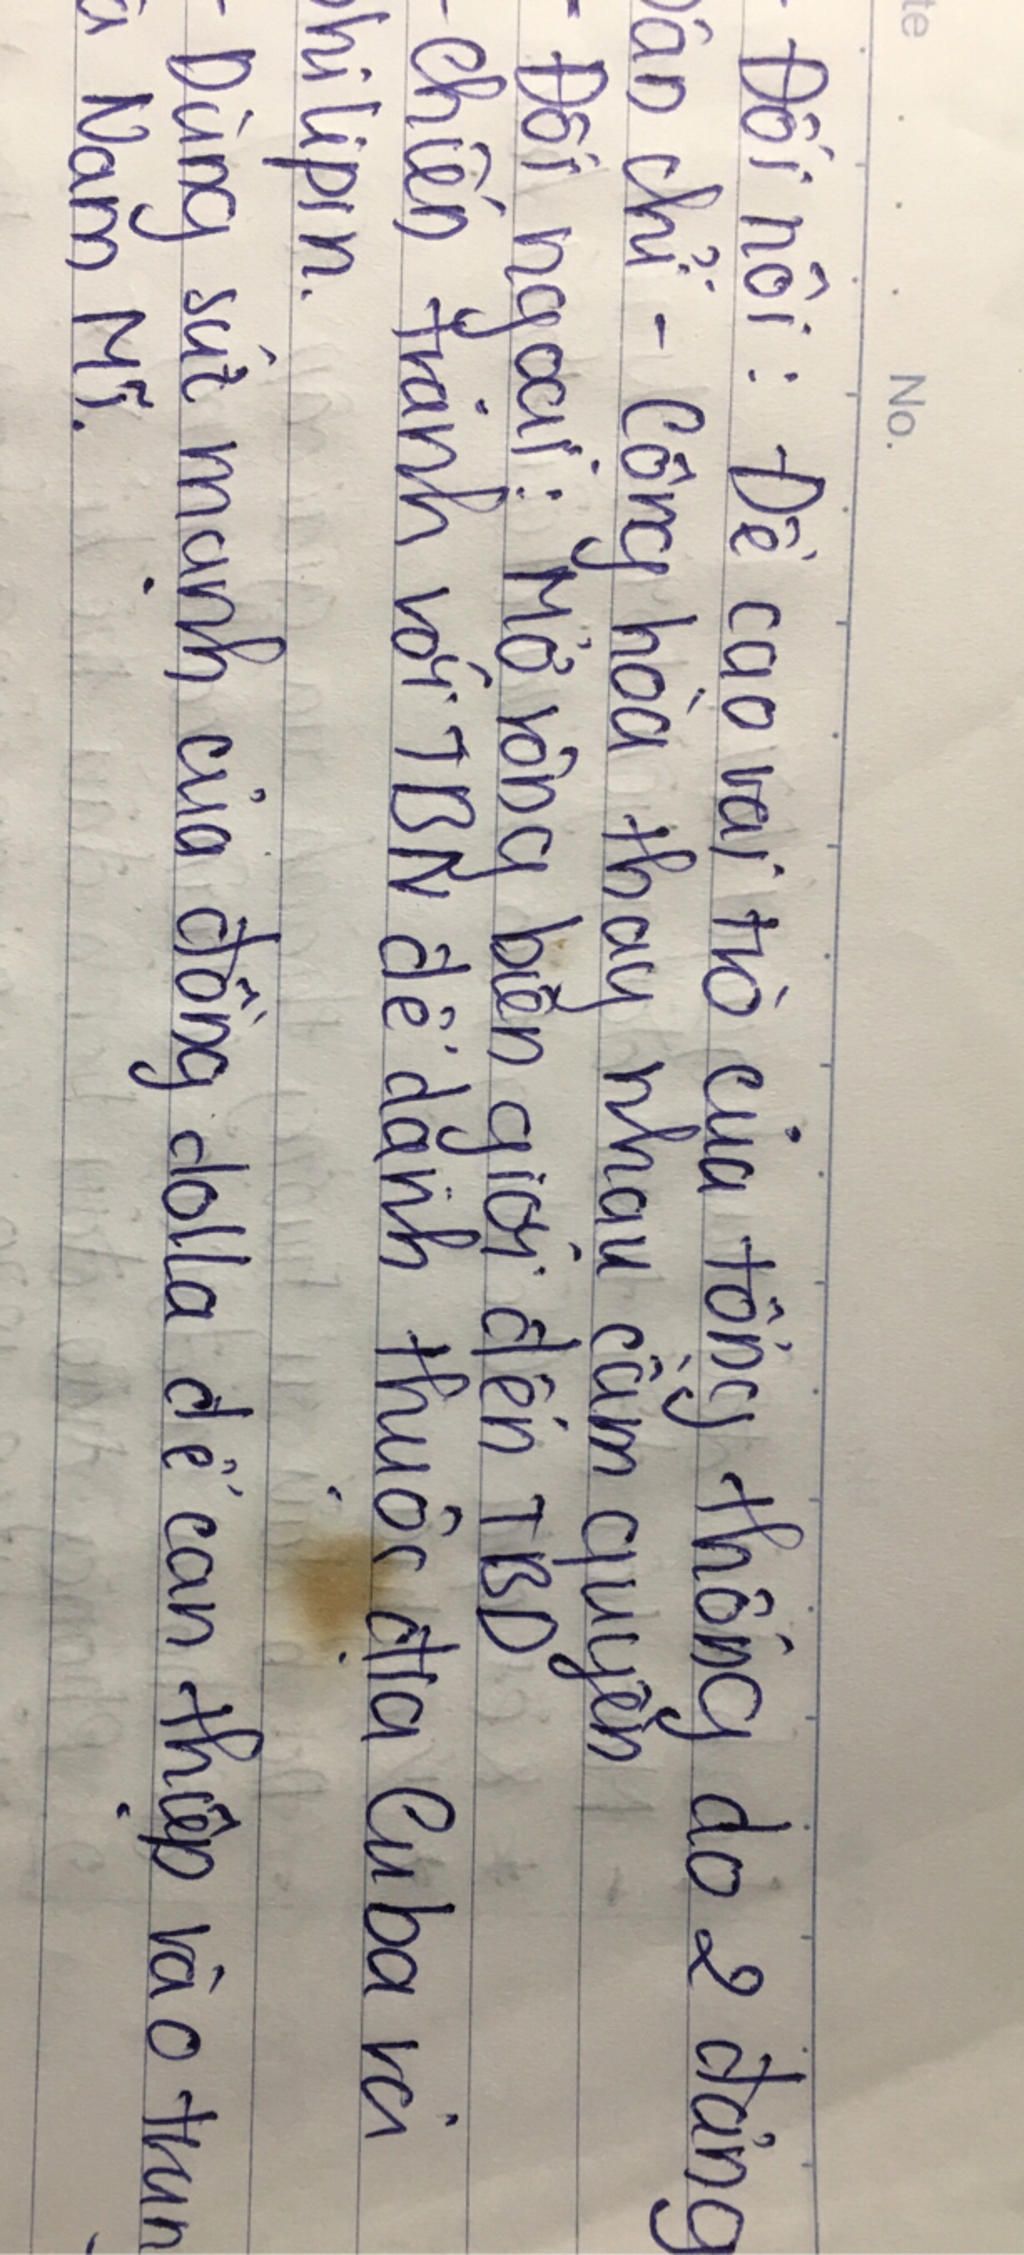 te No.
- Đối nội: Đề cao vai trò của tổng thống do 2 đảng
Dân chủ - Cộng hòa thay nhau cầm quyền
- Đối ngoại: Mở rộng biên giới đến TBD
- Chiến tranh với TBN để dành thuộc địa Cuba và
philipin.
- Dùng sức mạnh của đồng dolla để can thiệp vào trun
à Nam Mĩ.